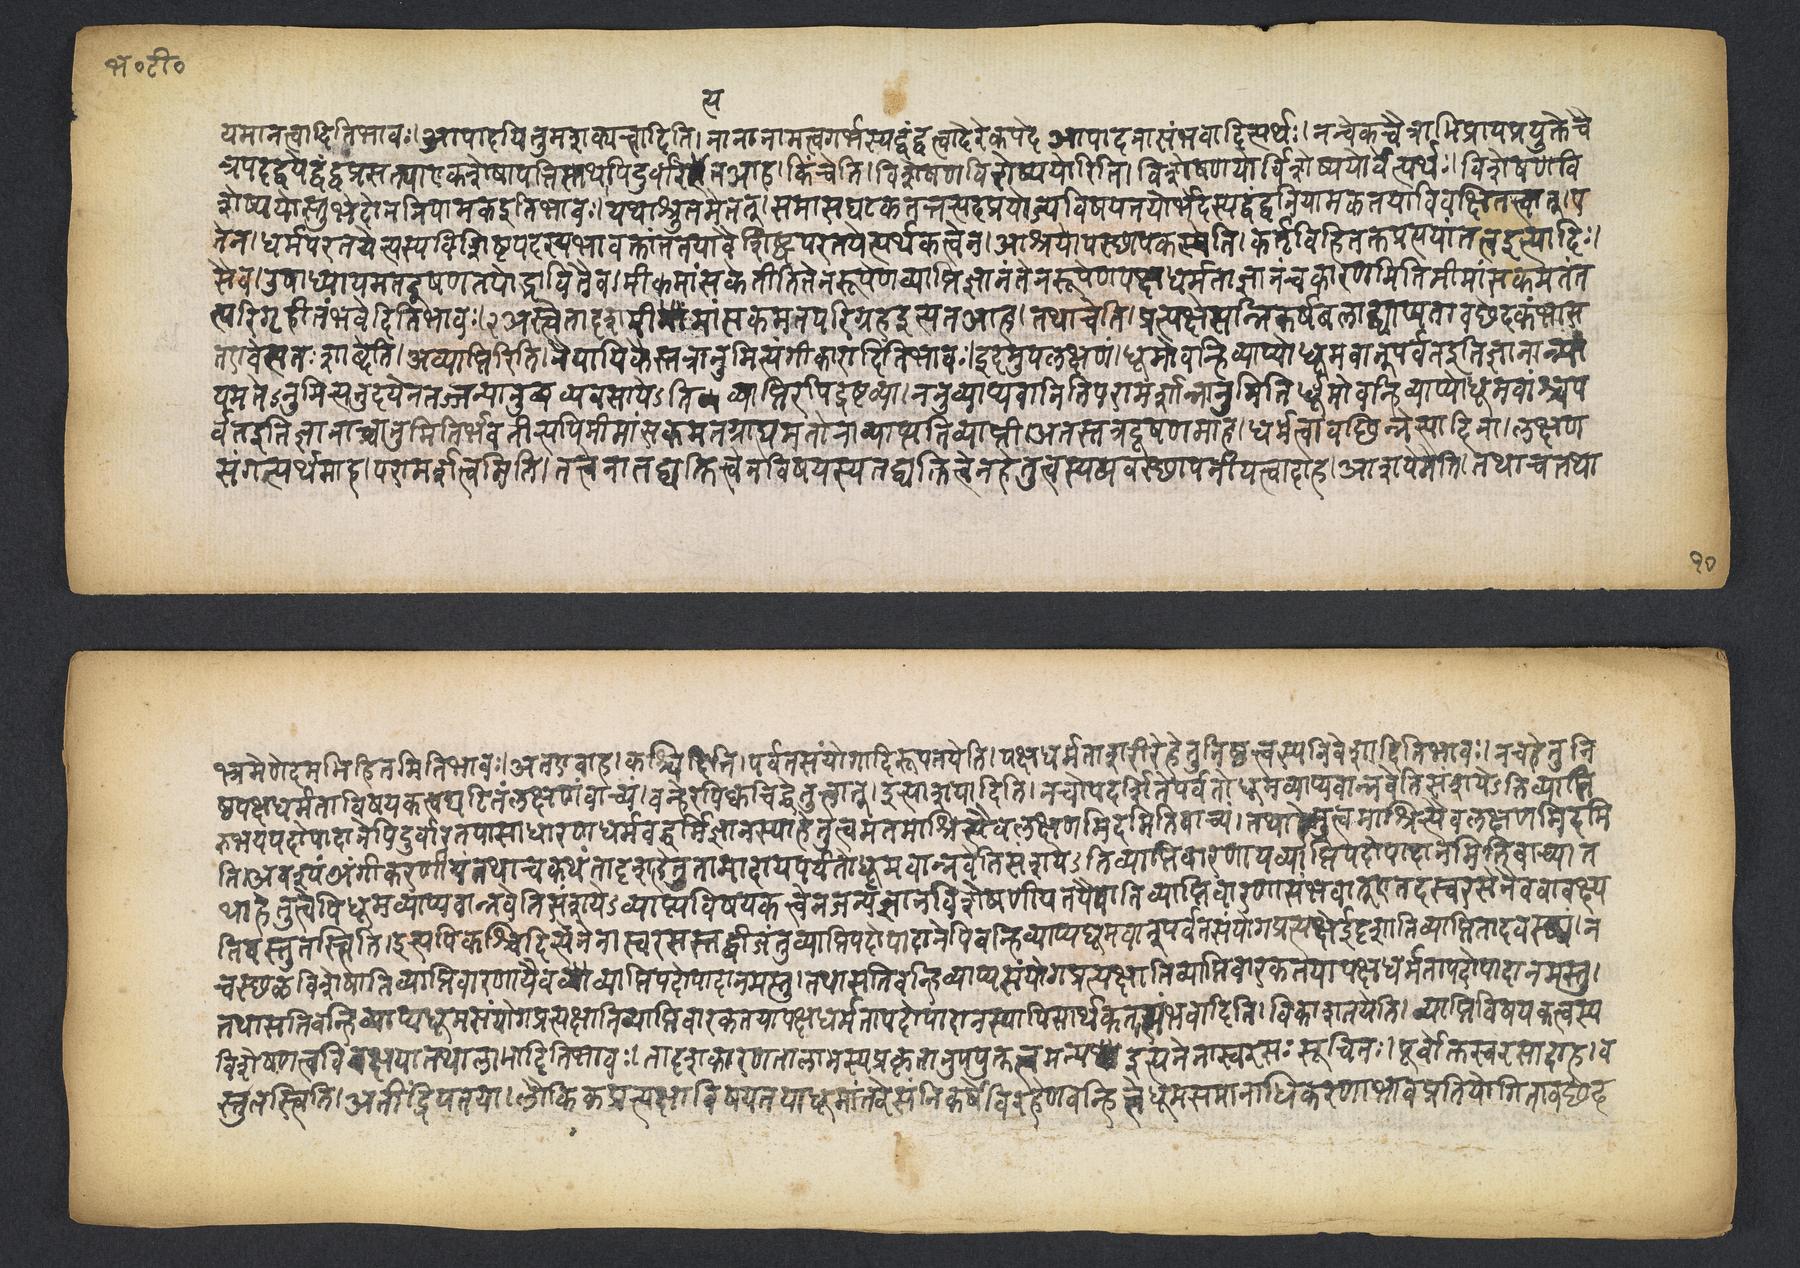 भ०टी०
त्य
यमानत्वादितिभावः।आपादयितुमशक्यत्वादिति।नानानामत्वगर्भस्यद्वंद्वत्वादेरेकपदेआपादनासंभवादित्यर्थः।नन्वेकच्चैत्राभिप्रायप्रयुक्तचै
त्रपदद्वयेद्वंद्वप्रसक्त्याएकशेषापत्तिस्तथापिदुर्वारेत्यतआह।किंचेति।विशेषणविशेष्ययोरिति।विशेषणयोर्विशेष्ययोर्वेत्यर्थः।विशेषणवि
शेष्ययोस्तुभेदोननियामकइतिभावः।यथाश्रुतमेतत्।समासघटकतत्तत्पदप्रयोज्यविषयतयोर्भेदस्यद्वंद्वनियामकतयाविवक्षितत्वात्।ए
तेन।धर्मपरतयेत्यस्यविशिष्टपदस्यभावक्तांततयावैशिष्ट्यपरतयेत्यर्थकत्वेन।आश्रयोपस्थापकस्येति।कर्तृविहितक्तप्रत्ययांतत्वइत्यादिः।
सेव।उपाध्यायमतदूषणतयोद्भावितैव।मीमांसकेतीतितेनरूपेणव्याप्तिज्ञानंतेनरूपेणपक्षधर्मताज्ञानंचकारणमितिमीमांसकमतंत
त्परिगृहीतंभवेदितिभावः।अस्त्वेतादृशमीमांसकमतपरिग्रहइत्यतआह।तथाचेति।प्रत्यक्षसन्निकर्षबलाद्व्याप्यतावछेदकंभास
तएवेत्यतःशाब्देति।अव्याप्तिरिति।नैयायिकैस्तत्रानुमित्यंगीकारादितिभावः।इदमुपलक्षणं।धूमोवन्हिव्याप्योधूमवान्पर्वतइतिज्ञानान्न्या
यमतेऽनुमित्यनुदयेनतज्जन्यानुव्यवसायेऽतिव्याप्तिरपिद्रष्टव्या।ननुव्याप्यवानितिपरामर्शान्नानुमितिर्धूमोवन्हिव्याप्योधूमवांश्चप
र्वतइतिज्ञानाच्चानुमितिर्भवतीत्यपिमीमांसकमतग्राह्यमतोनाव्याप्त्यतिव्याप्ती।अतस्तत्रदूषणमाह।धर्मत्वावछिन्नेत्यादिना।लक्षण
संगत्यर्थमाह।परामर्शत्वमिति।तत्त्वेनातद्व्यक्तित्वेनविषयस्यतद्व्यक्तित्वेनहेतुत्वस्यव्यवस्थापनीयत्वादाह।आशयेनेति।तथाचतथा
१०
भ्रमेणेदमभिहितमितिभावः।अतएवाह।कश्चिदिति।पर्वतसंयोगादिरूपतयेति।पक्षधर्मताशरीरेहेतुनिष्ठत्वस्यनिवेशादितिभावः।नचहेतुनि
ष्ठपक्षधर्मताविषयकत्वघटितलक्षणेवाच्यं।वन्हेरपिक्वचिद्धेतुत्वात्।इत्याशयादिति।नचोपदर्शितेपर्वतोधूमव्याप्यवान्नवेतिसंशयेऽतिव्याप्ति
रुभयपदोपादानेपिदुर्वारेतयासाधारणधर्मवद्धर्मिज्ञानस्याहेतुत्वमतमाश्रित्यैवलक्षणमिदमितिवाच्यं।तथाहेतुत्वमाश्रित्यैवलक्षणमिदमि
ति।अवश्यंअंगीकरणीयंतथाचकथंतादृशहेतुतामादायपर्वतोधूमवान्नवेतिसंशयेऽतिव्याप्तिवारणायव्याप्तिपदोपादानमितिवाच्यंत
थाहेतुत्वेपिधूमव्याप्यवान्नवेतिसंशयेऽव्याप्यविषयकत्वेनजन्यज्ञानविशेषणीयतयैवातिव्याप्तिवारणासंभवात्एतदस्वरसेनैववावक्ष्य
तिवस्तुतस्त्विति।इत्यपिकश्चिदित्यनेनास्वरसस्तद्बीजंतुव्याप्तिपदोपादानेपिवन्हिव्याप्यधूमवान्पर्वतसंयोगप्रत्यक्षेईदृशातिव्याप्तितादवस्थ्यं।न
चस्थलविशेषातिव्याप्तिवारणायैववाव्याप्तिपदोपादानमस्तु।तथासतिवन्हिव्याप्यसंयोगप्रत्यक्षातिव्याप्तिवारकतयापक्षधर्मतापदोपादानमस्तु।
तथासतिवन्हिव्याप्यधूमसंयोगप्रत्यक्षातिव्याप्तिवारकतयापक्षधर्मतापदोपादानस्यापिसार्थकत्वसंभवादिति।विकाशतयेति।व्याप्तिविषयकत्वस्य
विशेषणत्वविवक्षयातथालाभादितिभावः।तादृशकारणतालाभस्यप्रकृतानुपयुक्तत्वमन्यइत्यनेनास्वरसःसूचितः।पूर्वोक्तास्वरसादाह।व
स्तुतस्त्विति।अतींद्रियतया।लौकिकप्रत्यक्षाविषयतयाधूमांतरेसन्निकर्षविरहेणवन्हित्वेधूमसमानाधिकरणाभावप्रतियोगितावछेद